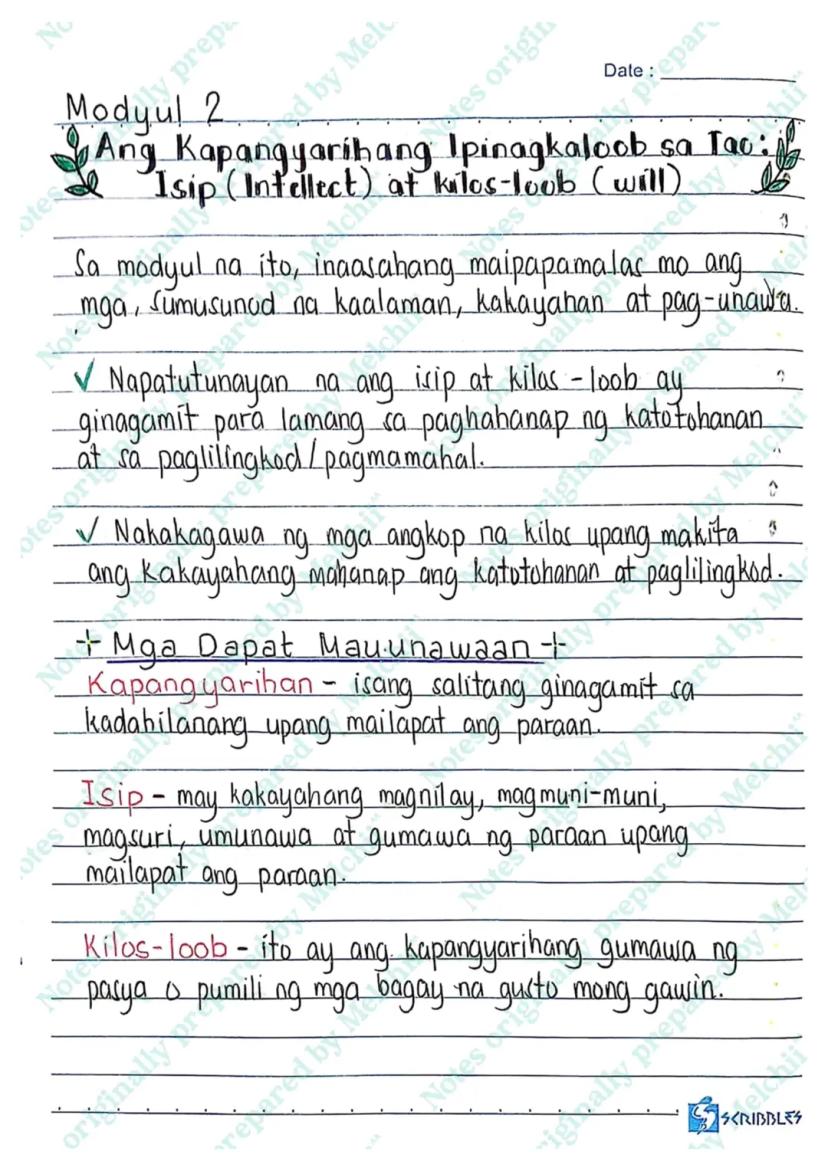 Date :
Modyul 2
Ang Kapangyarihang Ipinagkaloob sa Tao:
Isip (Intellect) at kilos-loob (will)
Sa modyul na ito, inaasahang maipapamalas mo ang
mga, sumusunod na kaalaman, kakayahan at pag-unawa.
✓ Napatutunayan na ang isip at kilos-loob ay
ginagamit para lamang sa paghahanap ng katotohanan
at sa paglilingkod/pagmamahal.
✓ Nakakagawa ng mga angkop na kilos upang makita
ang kakayahang mahanap ang katotohanan at paglilingkod.
+ Mga Dapat Mauunawaan +
Kapangyarihan - isang salitang ginagamit sa
kadahilanang upang mailapat ang paraan.
Isip - may kakayahang magnilay, magmuni-muni,
magsuri, umunawa at gumawa ng paraan upang
mailapat ang paraan.
Kilos-loob - ito ay ang kapangyarihang gumawa ng
pasya o pumili ng mga bagay na gusto mong gawin.
SCRIBBLES
Notes originally prepared by Melchii